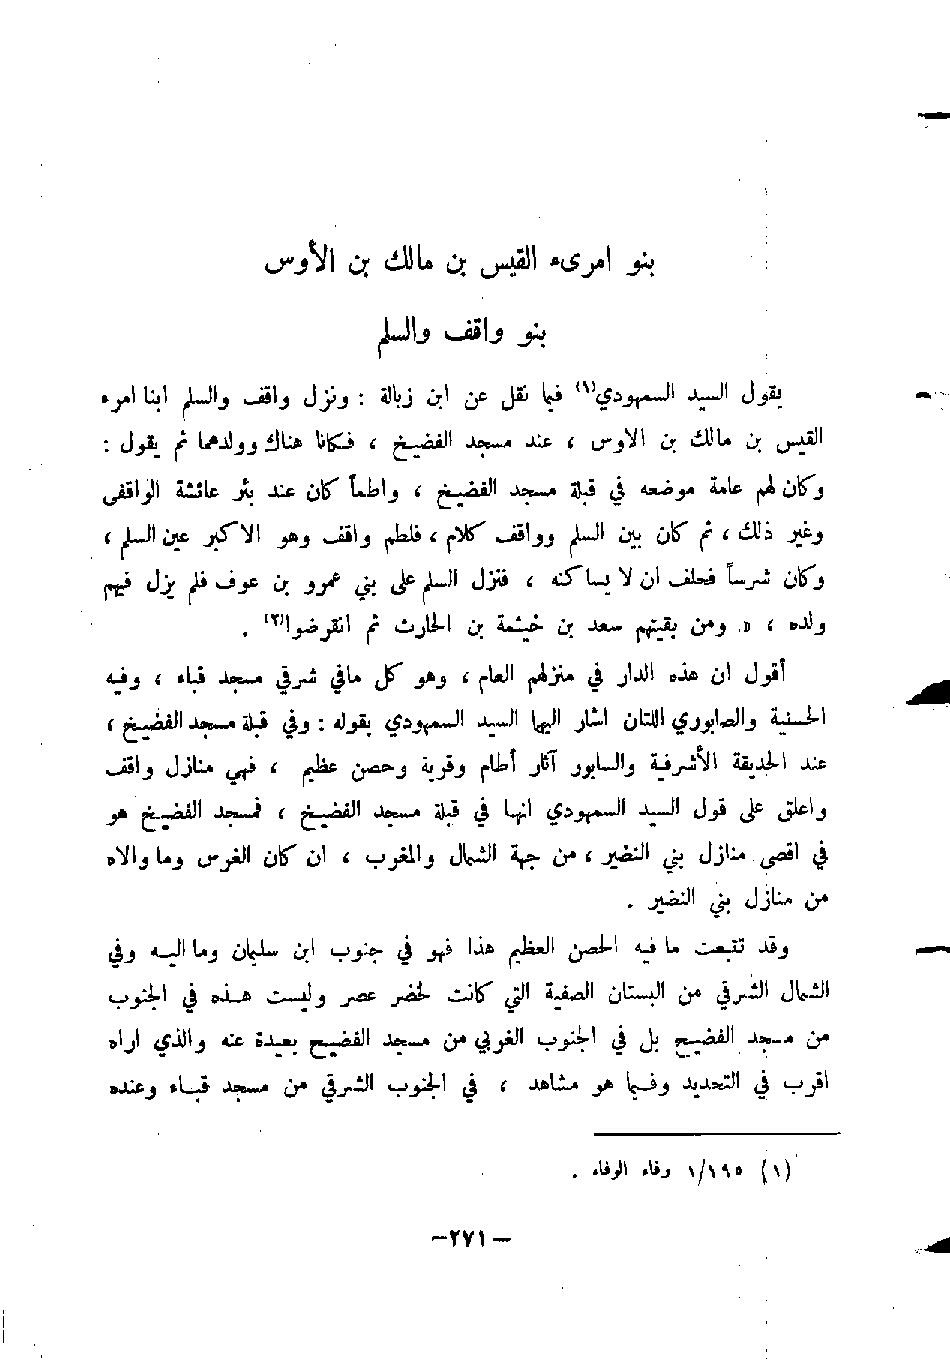 بنو امرىء القيس بن مالك بن الأوس
بنو واقف والسلم
يقول السيد السمهودي(١) فيما نقل عن ابن زبالة : ونزل واقف والسلم ابنا امرء
القيس بن مالك بن الاوس ، عند مسجد الفضيخ ، فكانا هناك وولدهما ثم يقول :
وكان لهم عامة موضعه في قبلة مسجد الفضيخ ، واطماً كان عند بئر عائشة الواقفى
وغير ذلك ، ثم كان بين السلم وواقف كلام ، فلطم واقف وهو الاكبر عين السلم ،
وكان شرساً فحلف ان لا يساكنه ، فنزل السلم على بني عمرو بن عوف فلم يزل فيهم
ولده ، ه. ومن بقيتهم سعد بن خيثمة بن الحارث ثم انقرضوا(٢) .
أقول ان هذه الدار في منزلهم العام ، وهو كل مافي شرقي مسجد قباء ، وفيه
الحسنية والصابوري اللتان اشار اليها السيد السمهودي بقوله : وفي قبلة مسجد الفضيخ ،
عند الحديقة الأشرفية والسابور آثار أطام وقرية وحصن عظيم ، فهي منازل واقف
واعلق على قول السيد السمهودي انها في قبلة مسجد الفضيخ ، فمسجد الفضيخ هو
في اقصى منازل بني النضير ، من جهة الشمال والمغرب ، ان كان الغرس وما والاه
من منازل بني النضير .
وقد تتبعت ما فيه الحصن العظيم هذا فهو في جنوب ابن سليمان وما اليه وفي
الشمال الشرقي من البستان الصفية التي كانت لخضر عصر وليست هذه في الجنوب
من مسجد الفضيخ بل في الجنوب الغربي من مسجد الفضيخ بعيدة عنه والذي اراه
اقرب في التحديد وفيما هو مشاهد ، في الجنوب الشرقي من مسجد قباء وعنده
(١) ١/١٩٥ وفاء الوفاء .
–٢٧١–